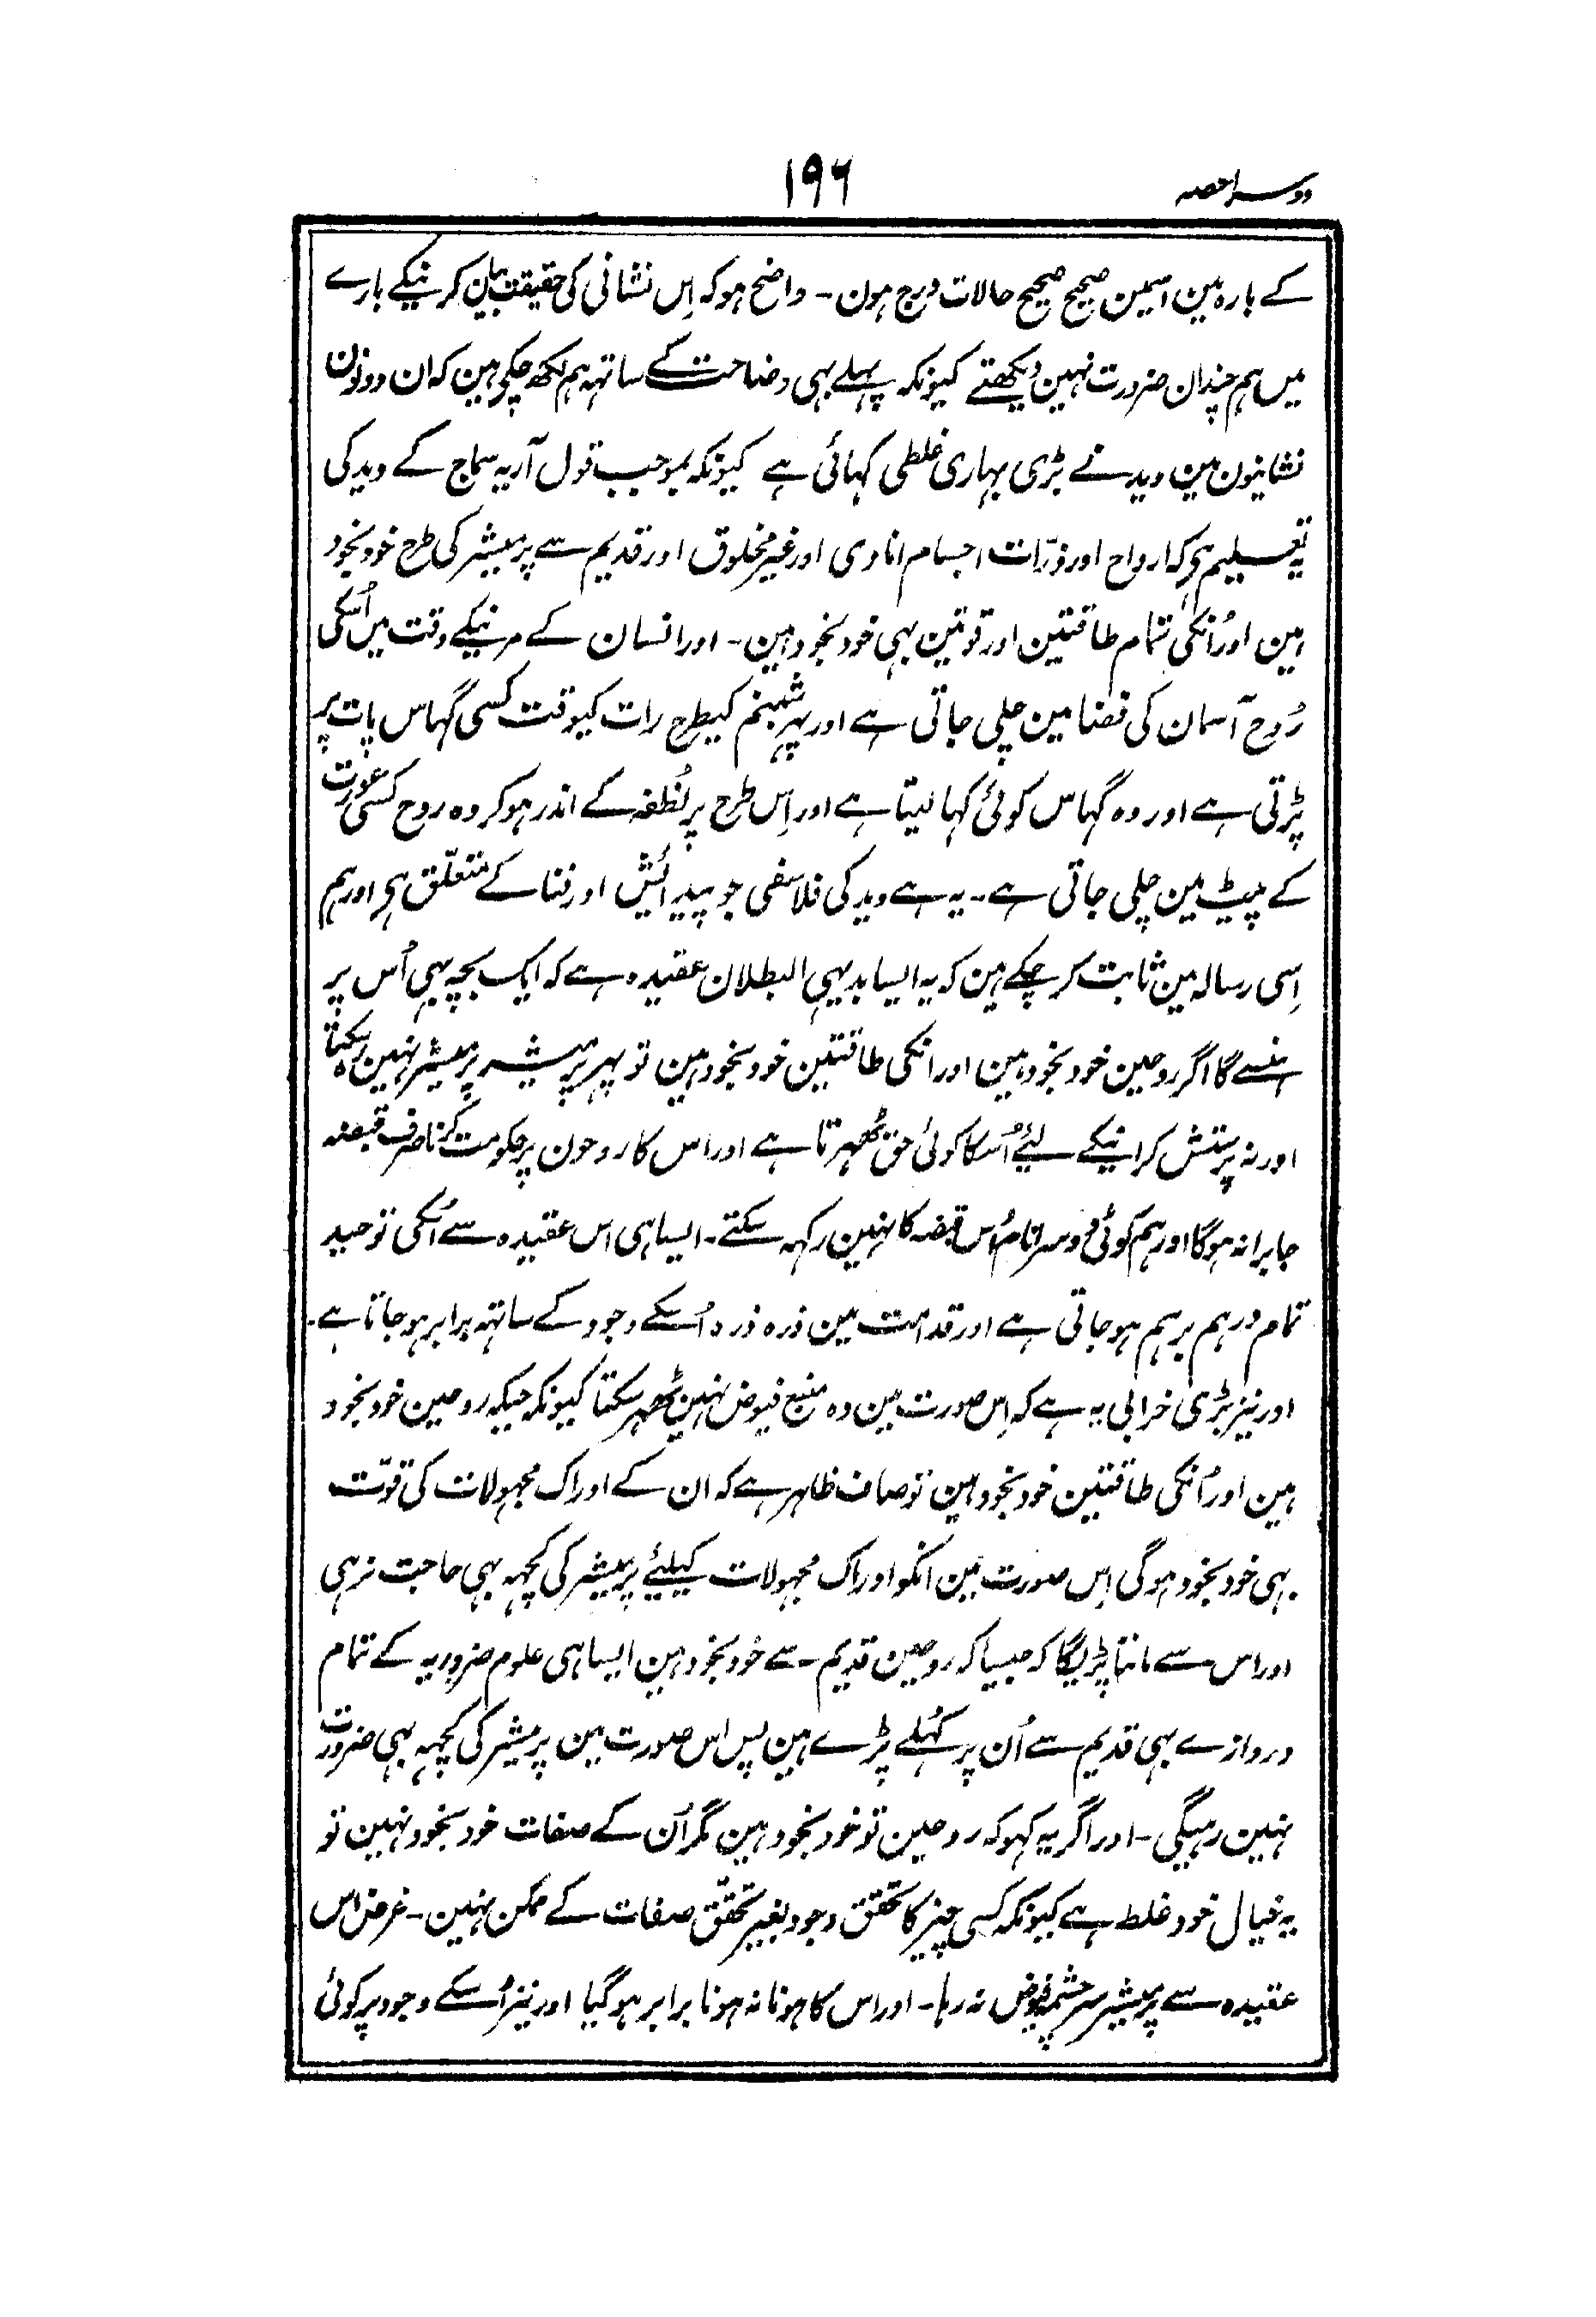 دوسرا حصہ
۱۹۶
کے بارہ مین اسمین صحیح صحیح حالات درج ہون۔ واضح ہو کہ اِس نشانی کی حقیقت بیان کرنیکے بارے
میں ہم چندان ضرورت نہین دیکھتے کیونکہ پہلے بہی وضاحت کے ساتہہ ہم لکھ چکے ہین کہ ان دونون
نشانیون مین وید نے بڑی بہاری غلطی کہائی ہے کیونکہ بموجب قول آریہ سماج کے وید کی
یہ تعلیم ہے کہ ارواح اور ذرّات اجسام انادی اور غیر مخلوق اور قدیم سے پرمیشر کی طرح خود بخود
ہین اور اُنکی تمام طاقتین اور قوتین بہی خود بخود ہین۔ اور انسان کے مرنیکے وقت میں اُسکی
رُوح آسمان کی فضا مین چلی جاتی ہے اور پہر شبنم کیطرح رات کیوقت کسی گہاس پات پر
پڑتی ہے اور وہ گہاس کوئی کہا لیتا ہے اور اِس طرح پر نُطفہ کے اندر ہو کر وہ روح کسی عورت
کے پیٹ مین چلی جاتی ہے۔ یہ ہے وید کی فلاسفی جو پیدائش اور فنا کے متعلّق ہے اور ہم
اِسی رسالہ مین ثابت کر چکے ہین کہ یہ ایسا بدیہی البطلان عقیدہ ہے کہ ایک بچہ بہی اُس پر
ہنسے گا اگر روحین خود بخود ہین اور انکی طاقتین خود بخود ہین تو پہر پرمیشر پرمیشر نہین رہ سکتا
اور نہ پرستش کرانیکے لیئے اُسکا کوئی حق ٹھہرتا ہے اور اس کا روحون پر حکومت کرنا صرف قبضہ
جابرانہ ہوگا اور ہم کوئی دوسرا نام اُس قبضہ کا نہین رکہہ سکتے۔ ایسا ہی اس عقیدہ سے اُسکی توحید
تمام درہم برہم ہو جاتی ہے اور قدامت مین ذرہ ذرہ اُسکے وجود کے ساتہہ برابر ہو جاتا ہے۔
اور نیز بڑی خرابی یہ ہے کہ اِس صورت مین وہ منبع فیوض نہین ٹھہر سکتا کیونکہ جبکہ روحین خود بخود
ہین اور اُنکی طاقتین خود بخود ہین تو صاف ظاہر ہے کہ ان کے ادراک مجہولات کی قوّت
بہی خود بخود ہوگی اِس صورت مین انکو ادراک مجہولات کیلئے پرمیشر کی کچہہ بہی حاجت نرہی
اور اس سے ماننا پڑیگا کہ جیسا کہ روحین قدیم سے خود بخود ہین ایسا ہی علوم ضروریہ کے تمام
دروازے بہی قدیم سے اُن پر کُہلے پڑے ہین پس اس صورت مین پرمیشر کی کچہہ بہی ضرورت
نہین رہیگی۔ اور اگر یہ کہو کہ روحین تو خود بخود ہین مگر اُن کے صفات خود بخود نہین تو
یہ خیال خود غلط ہے کیونکہ کسی چیز کا تحقق وجود بغیر تحقّق صفات کے ممکن نہین۔ غرض اس
عقیدہ سے پرمیشر سرچشمہ فیوض نہ رہا۔ اور اس کا ہونا نہ ہونا برابر ہو گیا اور نیز اُسکے وجود پر کوئی